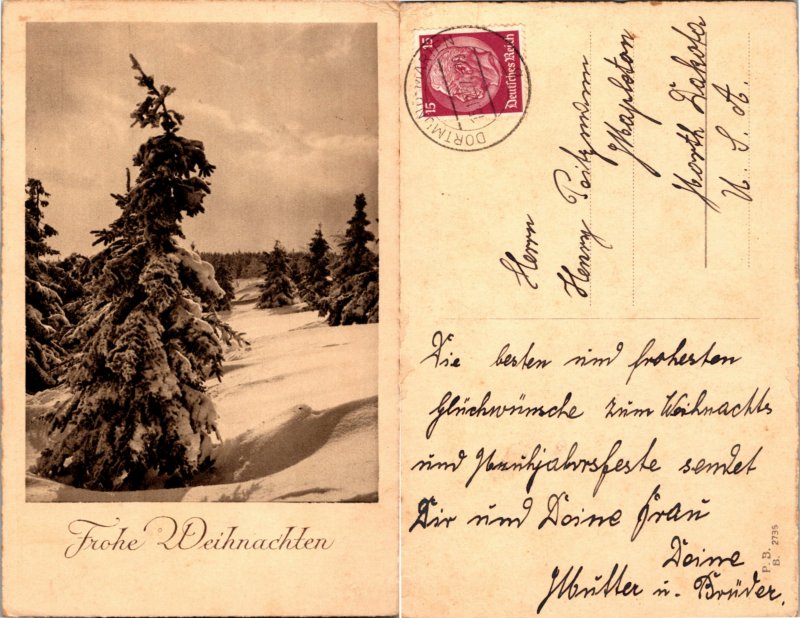 Frohe Weihnachten
15 15
Deutsches Reich
15
DORTMUND
Herrn
Henry Poitzmann
Mapleton
North Dakota
U. S. A.
Die besten und frohesten
Glückwünsche zum Weihnachts
und Neuhjahrsfeste sendet
Dir und Deine Frau
Deine
Mutter u. Brüder.
P. B.
B. 2735